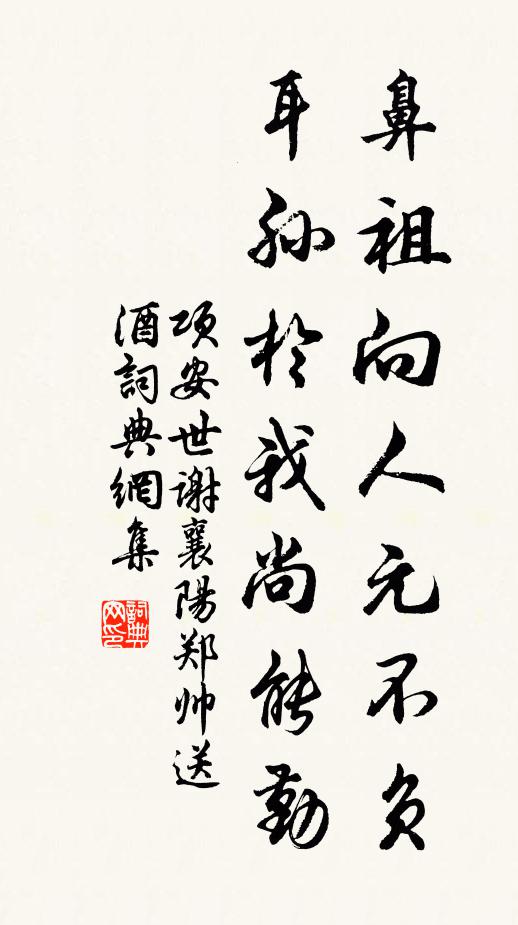 鼻祖向人元不负
耳孙於我尚能勤
项安世谢襄陽郑帅送
酒詞典網集
詞典
网印